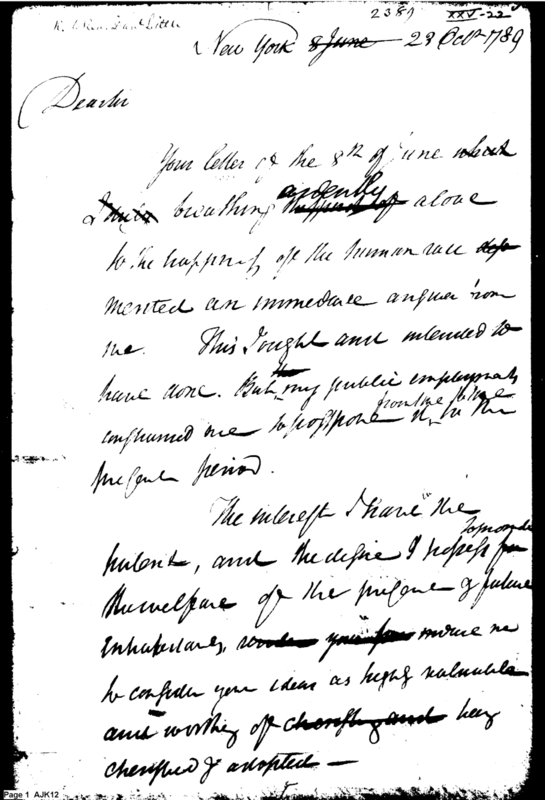 2389 XXV-22
New York 8 June 23 Octr 1789
Dear Sir
Your letter of the 8th of June which
breathing ardently alone
to the happiness of the human race
merited an immediate answer from
me. This I ought and intended to
have done. But the my public employments
constrained me to postpone it from time to time to the
present period.
The interest I have in the
and the desire I possess to promote
the welfare of the present & future
Inhabitants, induce me
to consider your ideas as highly valuable
and worthy of cherishing and being
cherished & adopted —
Page 1 AJK12